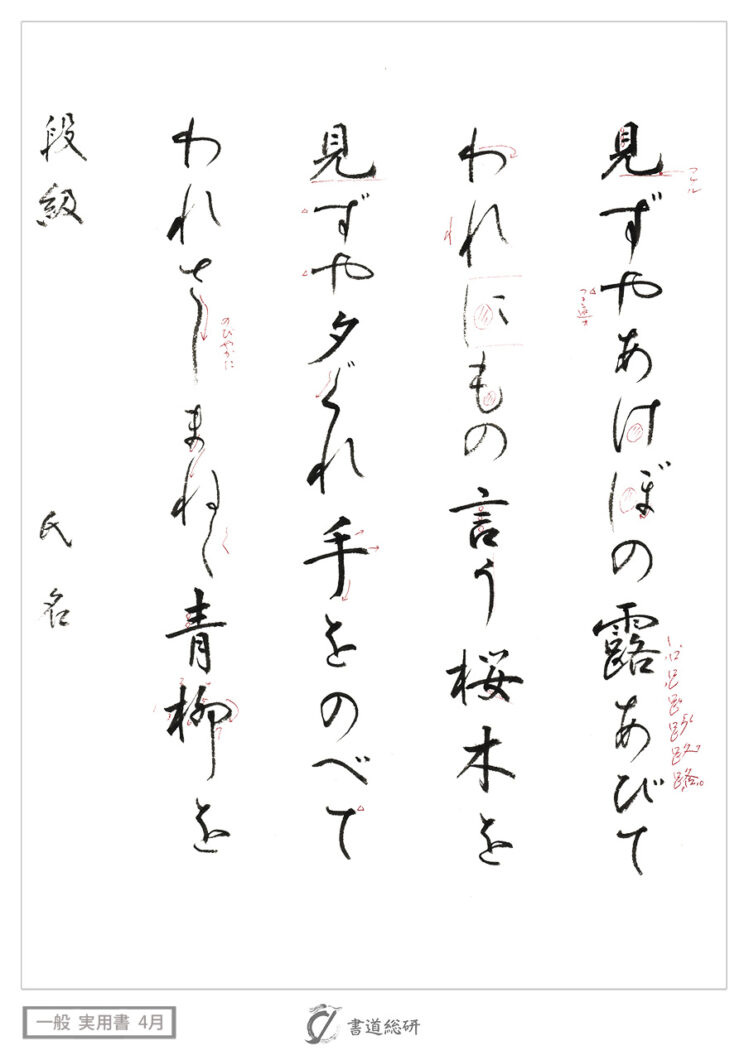 見ずやあけぼの露あびて
われにもの言う桜木を
見ずや夕ぐれ手をのべて
われさしまねく青柳を
段級 氏名
つける
つき返す
のびやかに
く
一般 実用書 4月
書道総研